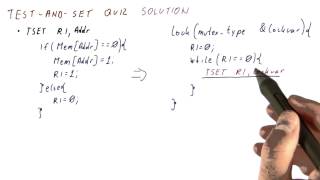 TEST-AND-SET QUIZ SOLUTION
• TSET R1, Addr
if(Mem[Addr]==0){
Mem[Addr]=1;
R1=1;
}else{
R1=0;
}
⇒
Lock(mutex_type &lockvar){
R1=0;
while(R1==0){
TSET R1, lockvar
}
}